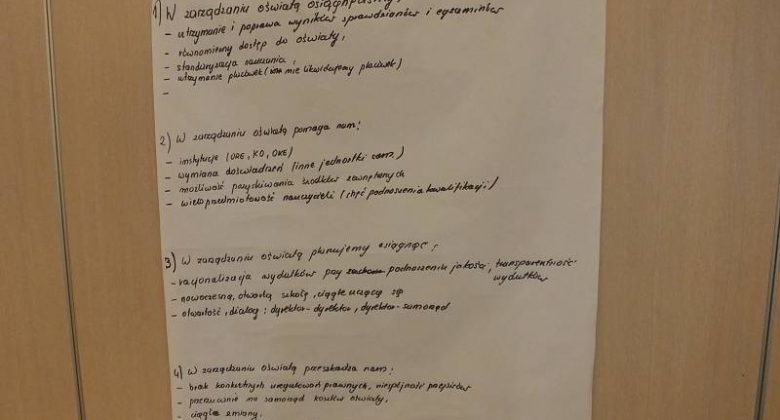 1) W zarządzaniu oświatą osiągnęliśmy:
- utrzymanie i poprawa wyników sprawdzianów i egzaminów
- równomierny dostęp do oświaty,
- standaryzacja nauczania,
- utrzymanie placówek (nie likwidujemy placówek)
-
2) W zarządzaniu oświatą pomaga nam:
- instytucje (ORE, KO, OKE)
- wymiana doświadczeń (inne jednostki sam.)
- możliwość pozyskiwania środków zewnętrznych
- wieloprzedmiotowość nauczycieli (chęć podnoszenia kwalifikacji)
3) W zarządzaniu oświatą planujemy osiągnąć:
- racjonalizacja wydatków przy podnoszeniu jakości, transparentność
wydatków
- nowoczesną, otwartą szkołę, ciągle uczącą się
- otwartość, dialog: dyrektor-dyrektor, dyrektor-samorząd
4) W zarządzaniu oświatą przeszkadza nam:
- brak konkretnych uregulowań prawnych, niespójność przepisów
- przerzucanie na samorząd kosztów oświaty,
- ciągłe zmiany,